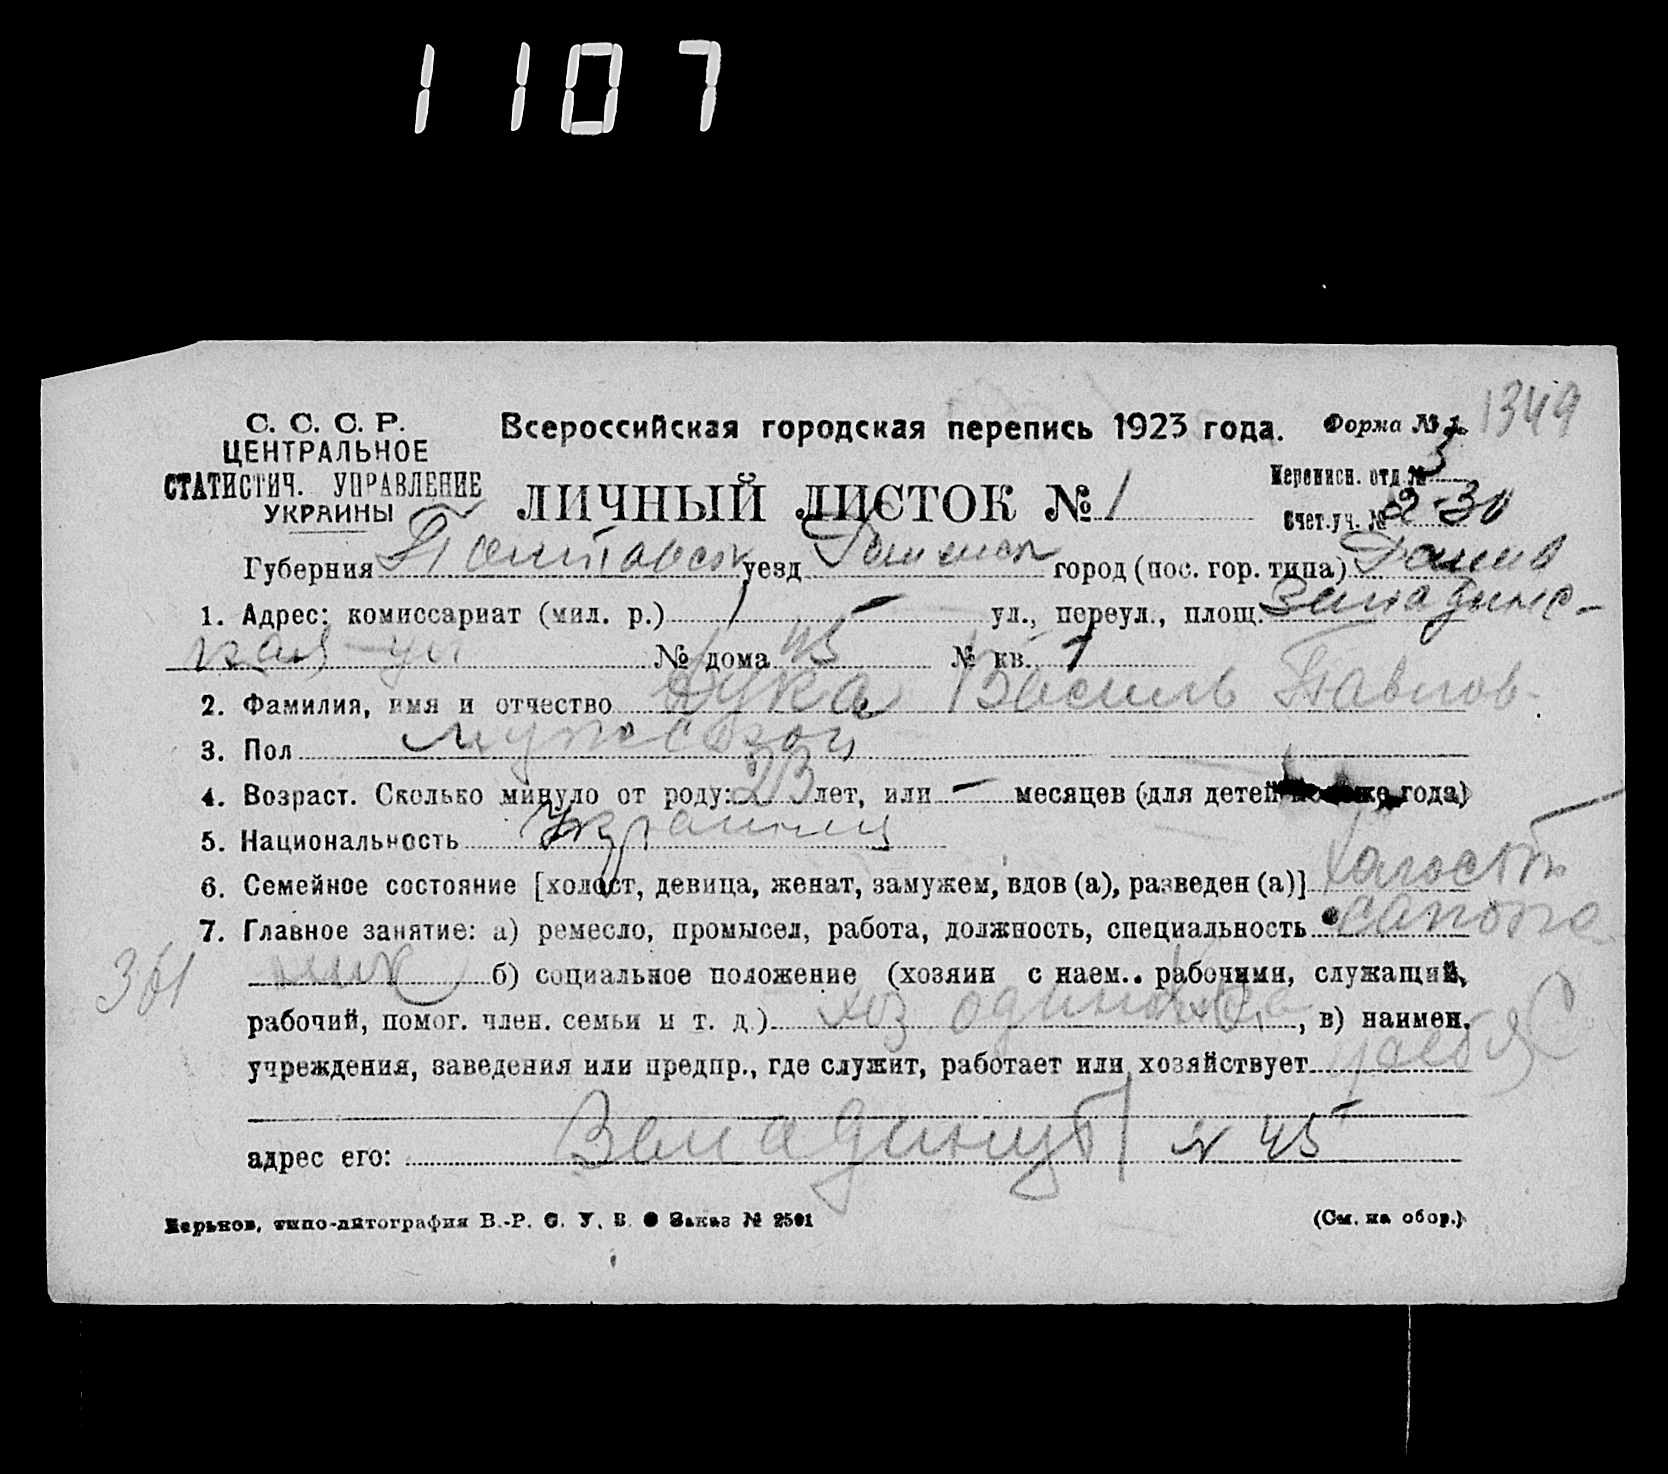 1107
1349
С. С. С. Р.
ЦЕНТРАЛЬНОЕ
СТАТИСТИЧ. УПРАВЛЕНИЕ
УКРАИНЫ
Всероссийская городская перепись 1923 года.
Форма № 1.
ЛИЧНЫЙ ЛИСТОК № 1
Переписн. отд. № 3
Счет. уч. № 2-30
Губерния Полтавск уезд город (пос. гор. типа)
1. Адрес: комиссариат (мил. р.) 1 – ул., переул., площ.
кая ул № дома 45 № кв. 1
2. Фамилия, имя и отчество Василь Павлов-
3. Пол мужской
4. Возраст. Сколько минуло от роду: 23 лет, или – месяцев (для детей года)
5. Национальность Украинец
6. Семейное состояние [холост, девица, женат, замужем, вдов (а), разведен (а)] халост
7. Главное занятие: а) ремесло, промысел, работа, должность, специальность сапож
361
ник б) социальное положение (хозяин с наем. рабочими, служащий,
рабочий, помог. член. семьи и т. д.) хоз одиночка, в) наимен.
учреждения, заведения или предпр., где служит, работает или хозяйствует у себя
адрес его: № 45
Харьков, типо-литография В.-Р. С. У. В. Заказ № 2501
(См. на обор.)